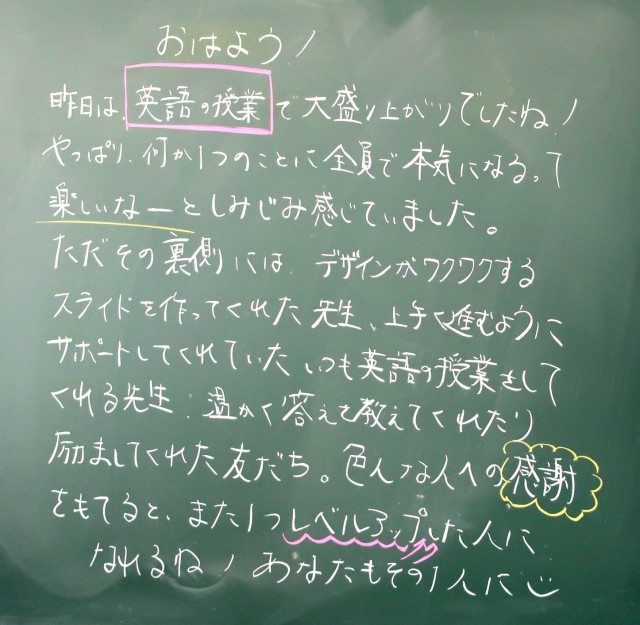 おはよう!
昨日は、英語の授業で大盛り上がりでしたね!
やっぱり、何か1つのことに全員で本気になるって
楽しいなーとしみじみ感じていました。
ただその裏側には、デザインがワクワクする
スライドを作ってくれた先生、上手く進むように
サポートしてくれていた いつも英語の授業をして
くれる先生、温かく答えを教えてくれたり
励ましてくれた友だち。色んな人への感謝
をもてると、また1つレベルアップした人に
なれるね!あなたもその1人に